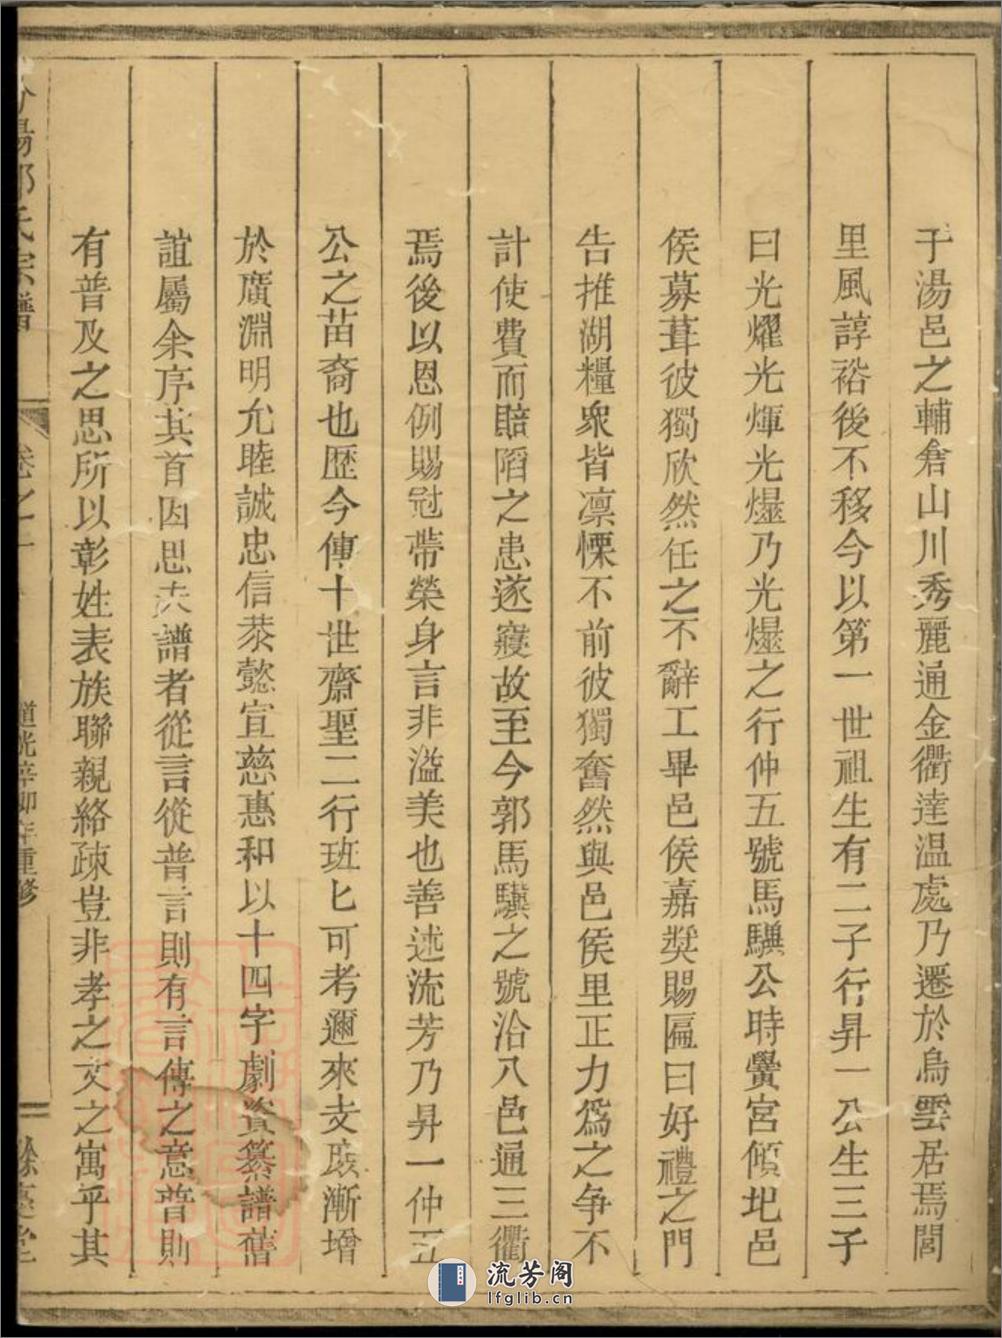 于湯邑之輔倉山川秀麗通金衢達温處乃遷於烏雲居焉閭
里風諄裕後不移今以第一世祖生有二子行昇一公生三子
曰光燿光煇光㷸乃光㷸之行仲五號馬驥公時黌宮傾圮邑
侯募葺彼獨欣然任之不辭工畢邑侯嘉奬賜匾曰好禮之門
告推湖糧衆皆凛慄不前彼獨奮然與邑侯里正力爲之争不
計使費而賠䧟之患遂寢故至今郭馬驥之號沿八邑通三衢
焉後以恩例賜冠帶榮身言非溢美也善述流芳乃昇一仲五
公之苗裔也歴今傳十世齋聖二行班匕可考邇來支㳖漸增
於廣淵明允睦誠忠信恭懿宣慈惠和以十四字劇資纂譜舊
誼屬余序其首因思夫譜者從言從普言則有言傳之意普則
有普及之思所以彰姓表族聯親絡疎豈非孝之文之寓乎其
陽郭氏宗譜
卷之一
道光辛卯年重修
流芳阁
lfglib.cn